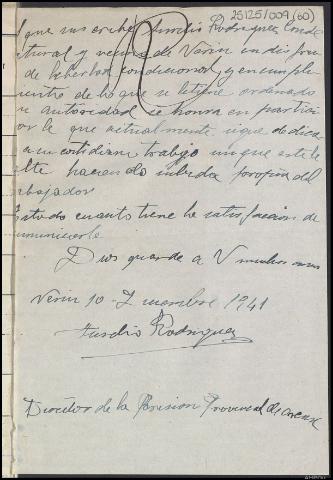 25125/009(60)
que suscribe Aurelio Rodriguez Conde
tural y vecino de Verin en disfru
de libertad condicional, y en cumpli
miento de lo que se le tiene ordenado
autoridad se honra en partici
par le que actualmente sigue dedica
a su cotidiano trabajo
haciendo vida propia del
trabajador
Es todo cuanto tiene la satisfaccion de
comunicarle
Dios guarde a V muchos anos
Verin 10 Diciembre 1941
Aurelio Rodriguez
Director de la Prision Provincial de Orense